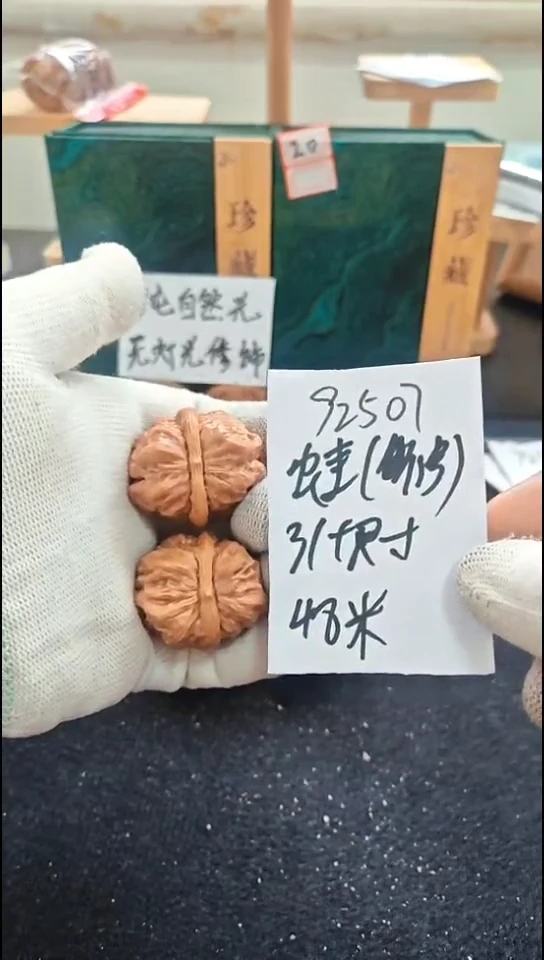 20
珍藏
珍藏
纯自然光
无灯光修饰
92507
蛙
31尺寸
48米